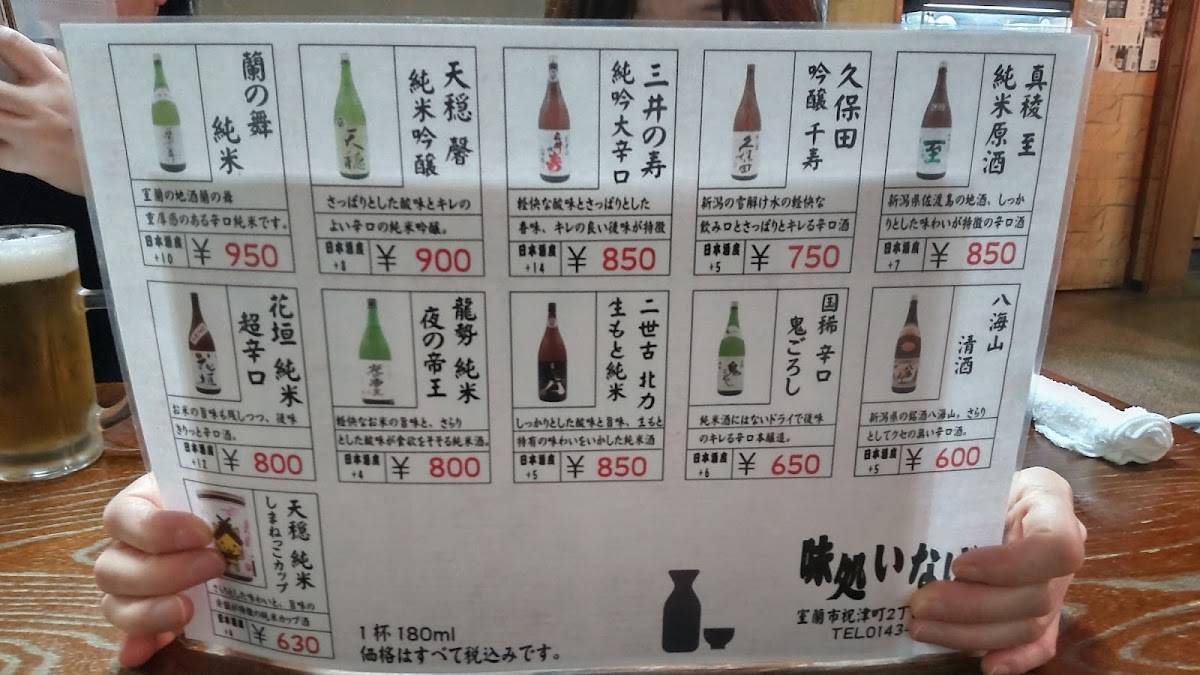 蘭の舞
純米
室蘭の地酒蘭の舞
重厚感のある辛口純米です。
日本酒度
+10
¥ 950
天穏 馨
純米吟醸
さっぱりとした酸味とキレの
よい辛口の純米吟醸。
日本酒度
+8
¥ 900
三井の寿
純吟大辛口
軽快な酸味とさっぱりとした
香味、キレの良い後味が特徴
日本酒度
+14
¥ 850
久保田
吟醸 千寿
新潟の雪解け水の軽快な
飲み口とさっぱりとキレる辛口酒
日本酒度
+5
¥ 750
真稜 至
純米原酒
新潟県佐渡島の地酒、しっか
りとした味わいが特徴の辛口酒
日本酒度
+7
¥ 850
花垣 純米
超辛口
お米の旨味も残しつつ、後味
きりっと辛口酒。
日本酒度
+12
¥ 800
龍勢 純米
夜の帝王
軽快なお米の旨味と、さらり
とした酸味が食欲をそそる純米酒。
日本酒度
+4
¥ 800
二世古 北力
生もと純米
しっかりとした酸味と旨味、生もと
特有の味わいをいかした純米酒
日本酒度
+5
¥ 850
国稀 辛口
鬼ごろし
純米酒にはないドライで後味
のキレる辛口本醸造。
日本酒度
+6
¥ 650
八海山
清酒
新潟県の銘酒八海山。さらり
としてクセの無い辛口酒。
日本酒度
+5
¥ 600
天穏 純米
しまねっこカップ
とした味わいと、旨味の
が特徴の純米カップ酒
日本酒度
¥ 630
1杯180ml
価格はすべて税込みです。
味処いなば
室蘭市祝津町2丁
TEL0143-